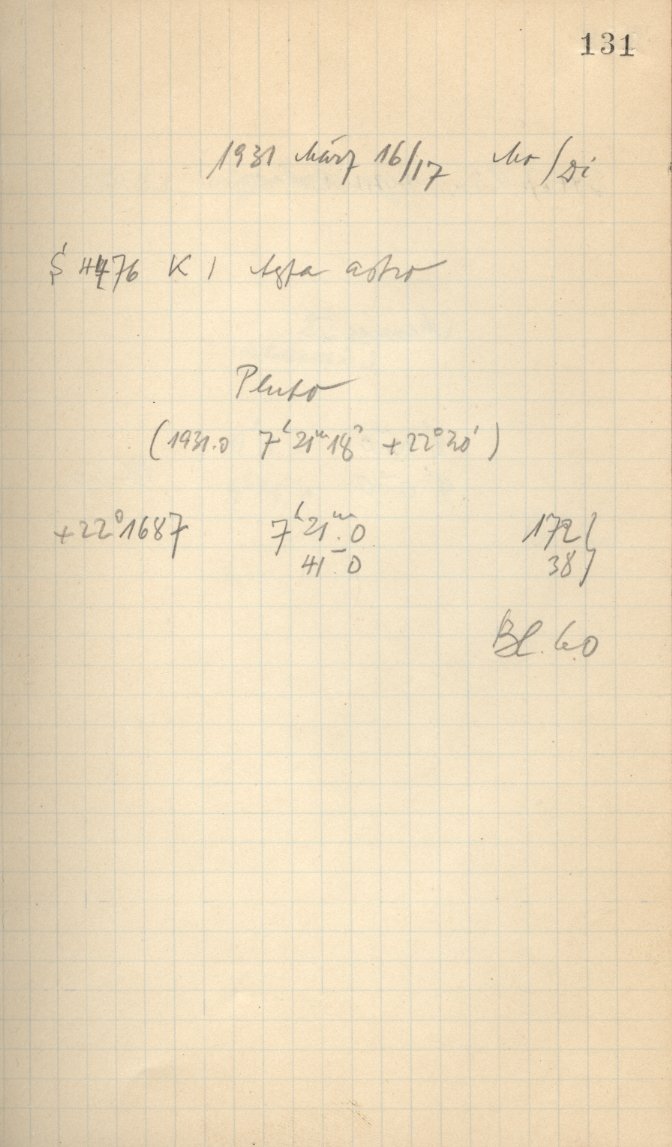 131
1931 März 16/17 Mo/Di
4476 K 1 Agfa astro
Pluto
(1931.0 7ʰ21ᵐ18ˢ +22°20')
+22°1687 7ʰ21ᵐ.0 172
41.0 38
Bl. 60